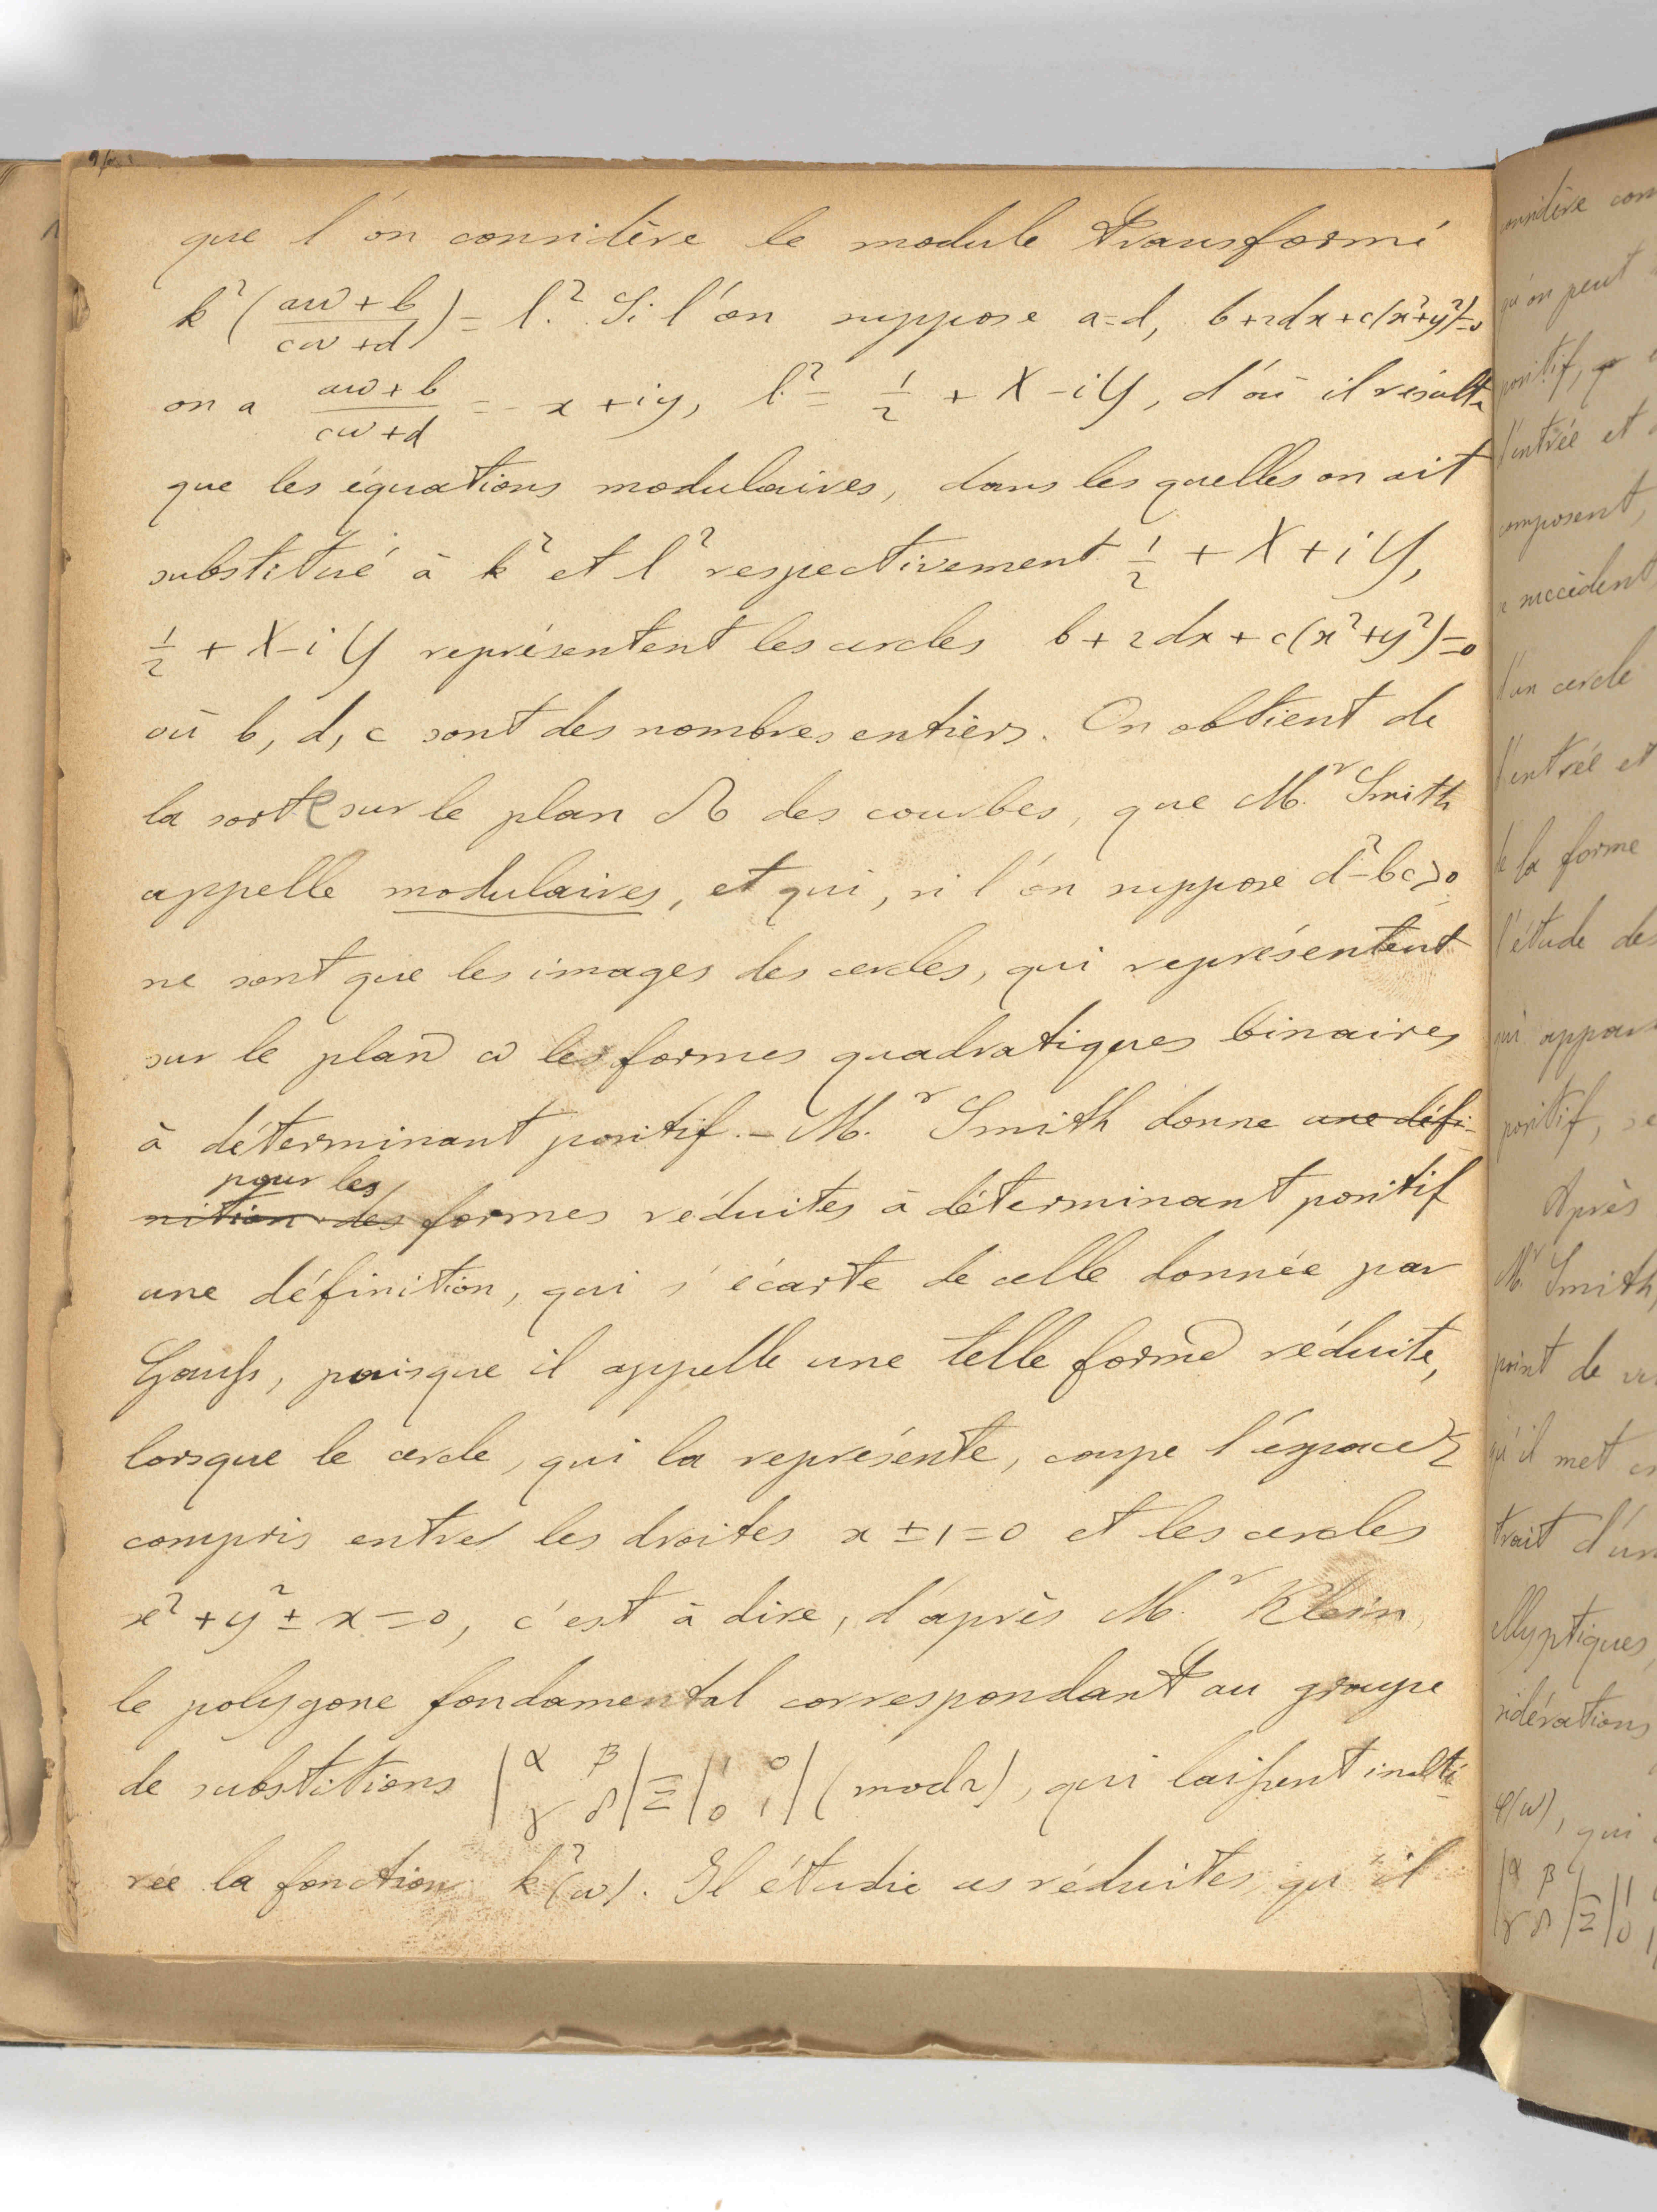 que l'on considère le module transformé
k²(aω+b/cω+d) = l². Si l'on suppose a=d, b+2dx+c(x²+y²)=0
on a aω+b/cω+d = -x+iy, l² = 1/2 + X-iY, d'où il résulte
que les équations modulaires, dans les quelles on ait
substitué à k² et l² respectivement 1/2 + X + iY,
1/2 + X-iY représentent les cercles b+2dx+c(x²+y²)=0
où b, d, c sont des nombres entiers. On obtient de
la sorte sur le plan Ω des courbes, que M.r Smith
appelle modulaires, et qui, si l'on suppose d²-bc>0
ne sont que les images des cercles, qui représentent
sur le plan ω les formes quadratiques binaires
à déterminant positif. — M.r Smith donne une défi-
pour les
nition des formes réduites à déterminant positif
une définition, qui s'écarte de celle donnée par
Gauss, puisque il appelle une telle forme réduite,
lorsque le cercle, qui la représente, coupe l'espace Σ
compris entre les droites x ± 1 = 0 et les cercles
x² + y² ± x = 0, c'est à dire, d'après M.r Klein,
le polygone fondamental correspondant au groupe
de substitions |α β γ δ| ≡ |1 0 0 1| (mod 2), qui laissent inalté-
rée la fonction k²(ω). Il étudie ces réduites, qu'il
onsidère com
qu'on peut
positif,
l'entrée et
omposent,
succèdent
d'un cercle
l'entrée et
de la forme
l'étude des
qui appar
positif, se
Après
M.r Smith,
point de vu
qu'il met
trait d'un
ellyptiques
sidérations
φ(ω), qui
|α β γ δ| ≡ |1 0 1